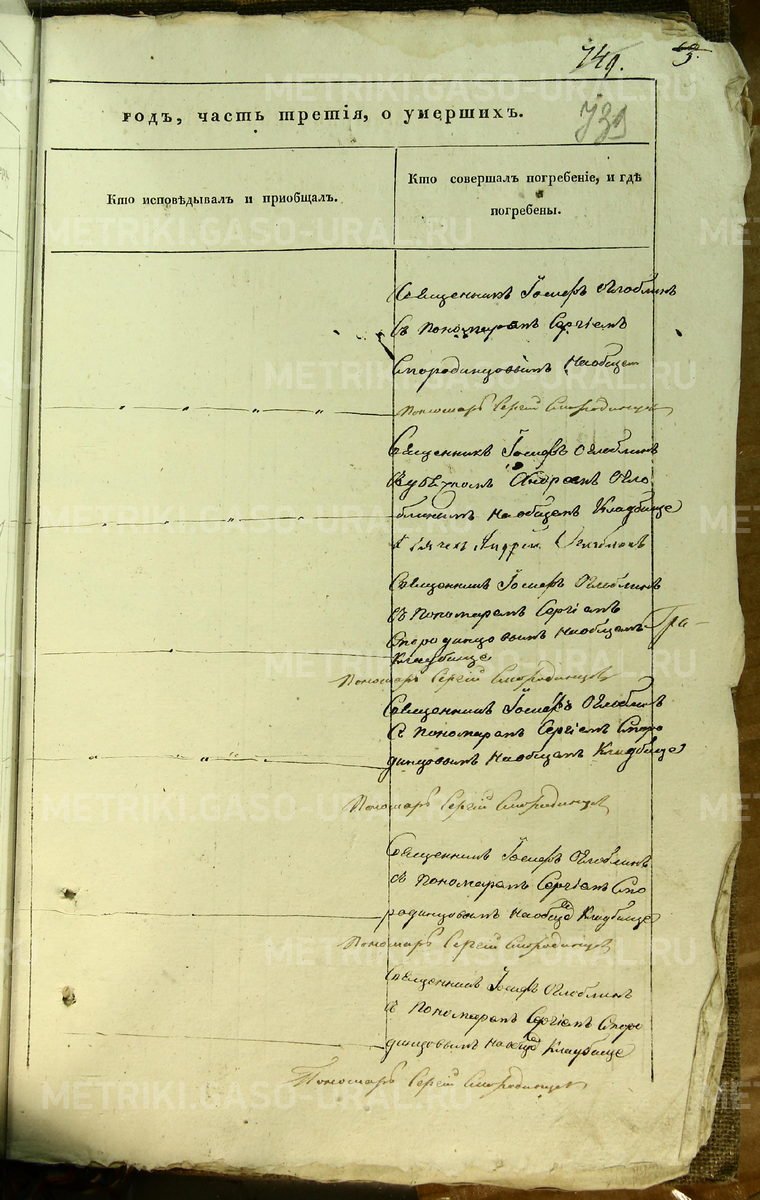 749.
739
годъ, часть третія, о умершихъ.
Кто исповѣдывалъ и приобщалъ.
Кто совершалъ погребеніе, и гдѣ
погребены.
Священникъ Іосифъ Оглоблинъ
Съ пономаремъ Сергіемъ
Смородинцовымъ на общемъ
Пономарь Сергій Смородинцов
Священникъ Іосифъ Оглоблинъ
Андреемъ Огло
блинымъ на общемъ Кладбище
Андрей Оглоблинъ
Священникъ Іосифъ Оглоблинъ
съ Пономаремъ Сергіемъ
Смородинцовымъ на общемъ Гра-
Кладбище
Пономарь Сергій Смородинцов
Священникъ Іосифъ Оглоблинъ
с Пономаремъ Сергіемъ Сморо
динцовымъ на общемъ Кладбище
Пономарь Сергій Смородинцов
Священникъ Іосифъ Оглоблинъ
съ Пономаремъ Сергіемъ Смо
родинцовымъ на общемъ Кладбище
Пономарь Сергій Смородинцов
Священникъ Іосифъ Оглоблинъ
съ Пономаремъ Сергіемъ Сморо
динцовымъ на общемъ Кладбище
Пономарь Сергій Смородинцов
METRIKI.GASO-URAL.RU